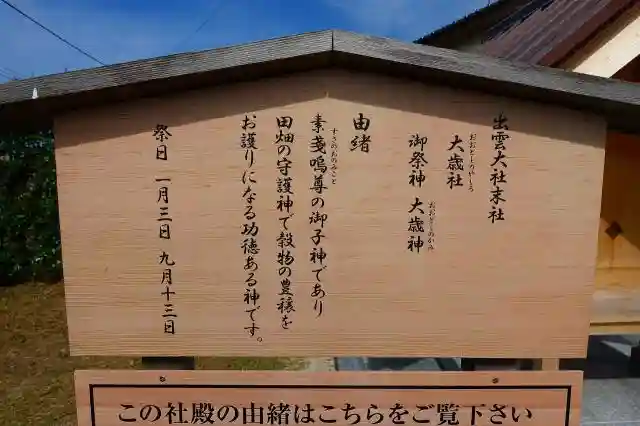 出雲大社末社
大歳社
おおとしのやしろ
御祭神 大歳神
おおとしのかみ
由緒
素戔嗚尊の御子神であり
すさのおのみこと
田畑の守護神で穀物の豊穣を
お護りになる功徳ある神です。
祭日 一月三日 九月十三日
この社殿の由緒はこちらをご覧下さい